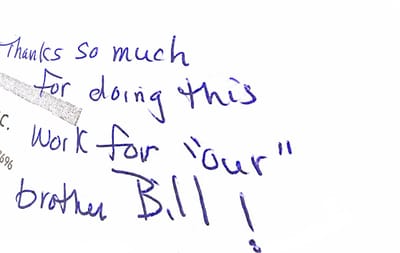 Thanks so much
for doing this
C.
work for "our"
696
brother Bill!